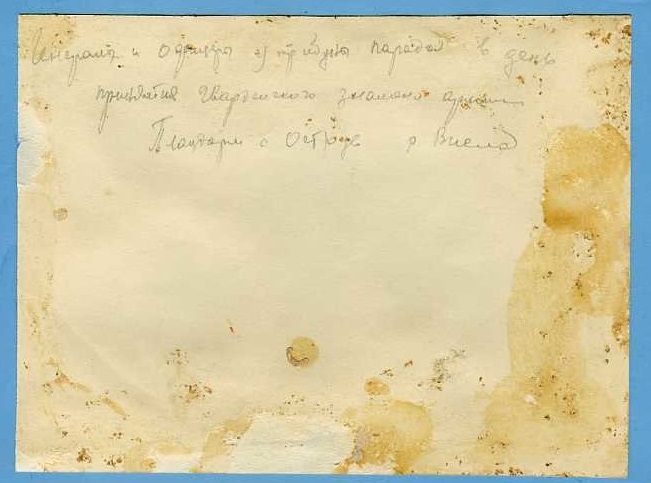 Генералы и офицеры у трибуны парада в день
принятия Гвардейского знамени армии
Плацдарм с Острув р Висла